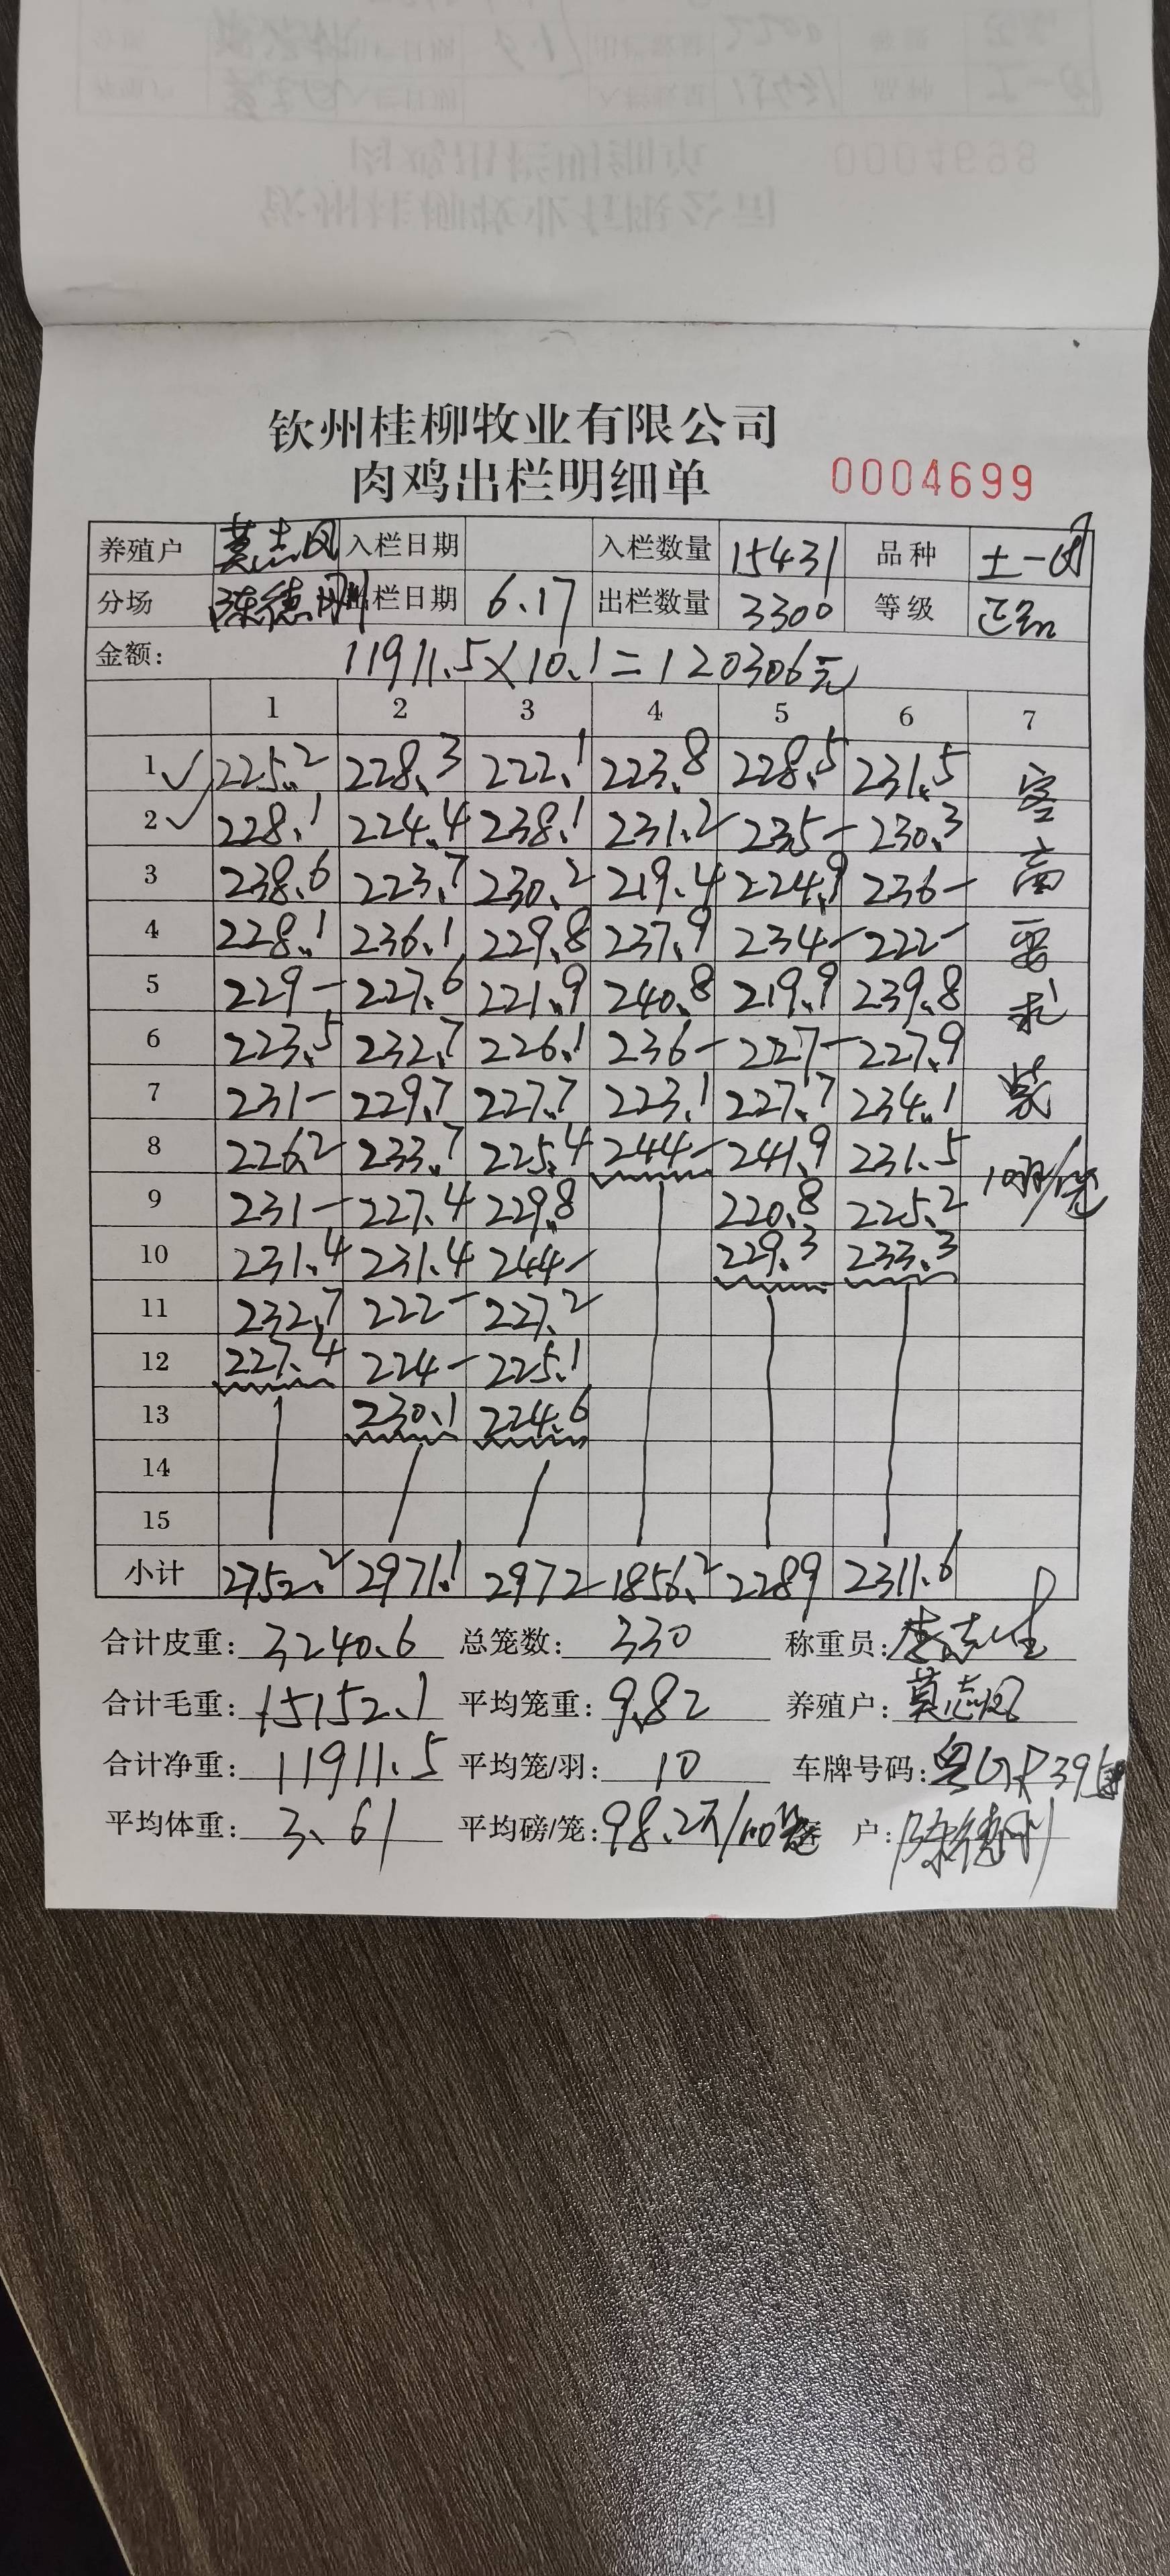 钦州桂柳牧业有限公司
肉鸡出栏明细单 0004699
养殖户 莫志凤 入栏日期 入栏数量 15431 品种 土一
分场 陈德刚 出栏日期 6.17 出栏数量 3300 等级 正品
金额: 11911.5×10.1=120306元
1 2 3 4 5 6 7
1 225.2 228.3 222.1 223.8 228.5 231.5 客
2 228.1 224.4 238.1 231.2 235- 230.3
3 238.6 223.7 230.2 219.4 224.9 236- 商
4 228.1 236.1 229.8 237.9 234- 222- 要
5 229- 227.6 221.9 240.8 219.9 239.8 求
6 223.5 232.7 226.1 236- 227- 227.9
7 231- 229.7 227.7 223.1 227.7 234.1 装
8 226.2 233.7 225.4 244- 241.9 231.5
9 231- 227.4 229.8 220.8 225.2 10羽/笼
10 231.4 231.4 244- 229.3 233.3
11 232.7 222- 227.2
12 227.4 224- 225.1
13 230.1 224.6
14
15
小计 2752.2 2971.1 2972 1856.2 2289 2311.6
合计皮重: 3240.6 总笼数: 330 称重员: 李志生
合计毛重: 15152.1 平均笼重: 9.82 养殖户: 莫志凤
合计净重: 11911.5 平均笼/羽: 10 车牌号码: 粤GR39
平均体重: 3.61 平均磅/笼: 98.2 户: 陈德刚